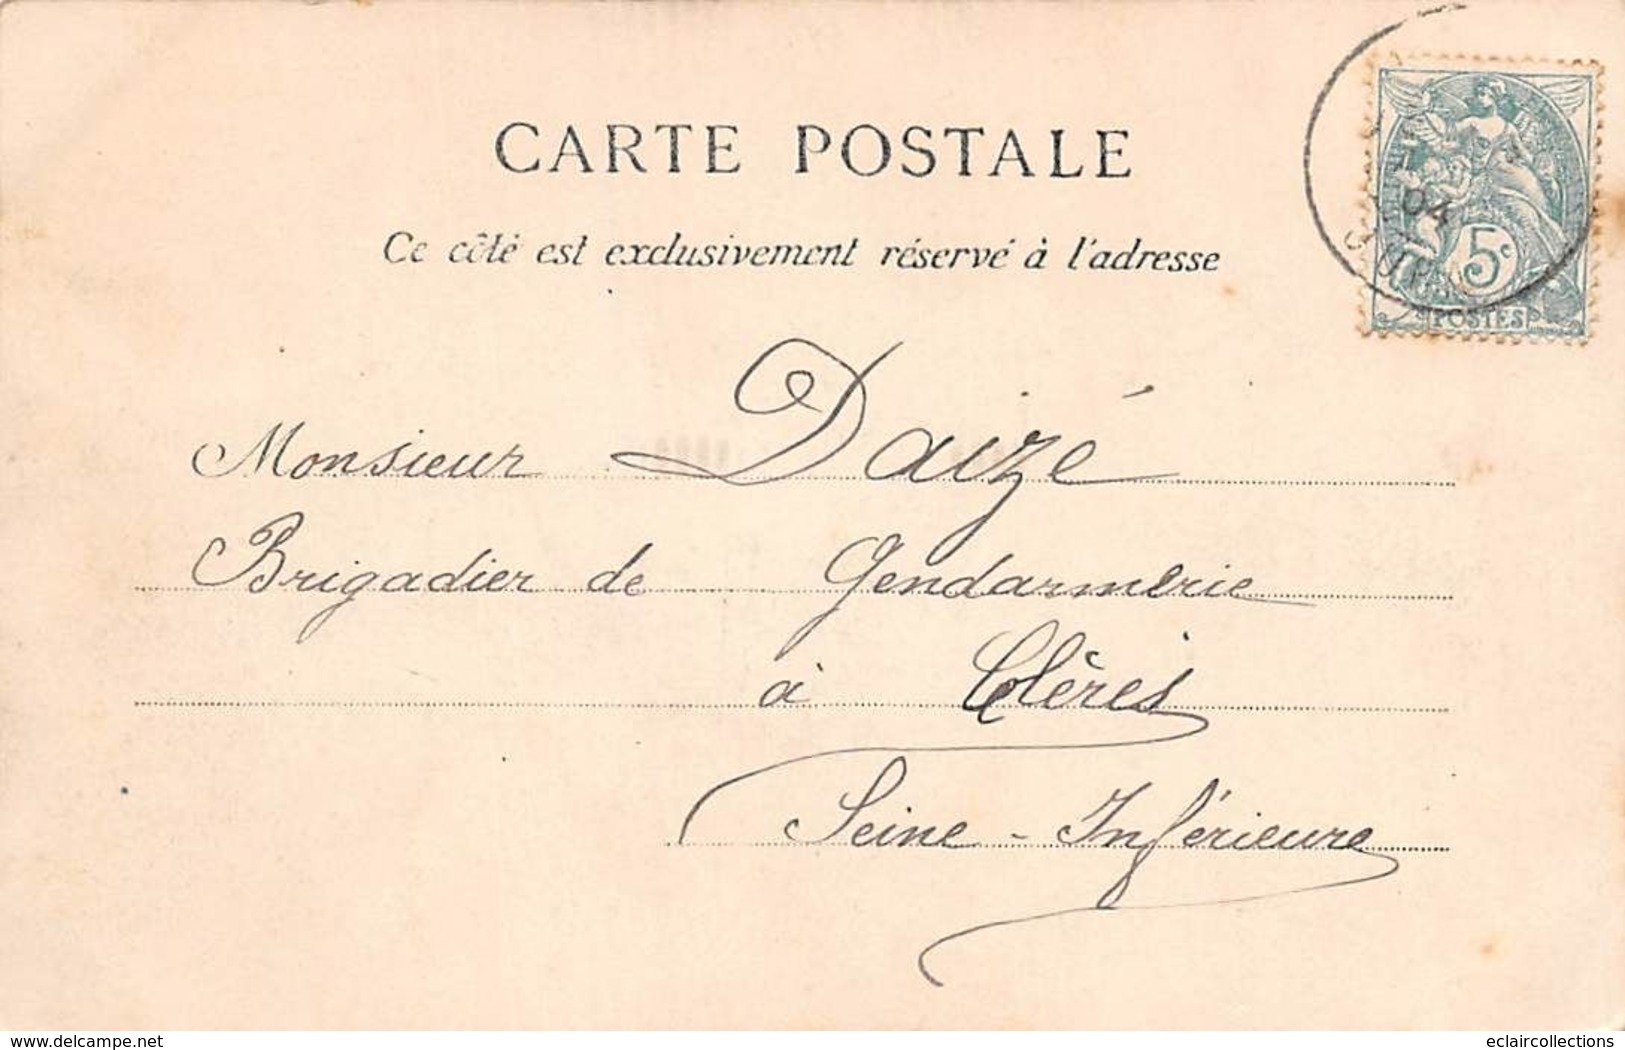 CARTE POSTALE
Ce côté est exclusivement réservé à l'adresse
04
5c
POSTES
Monsieur Daizé
Brigadier de Gendarmerie
à Clères
Seine-Inférieure
www.delcampe.net
eclaircollections